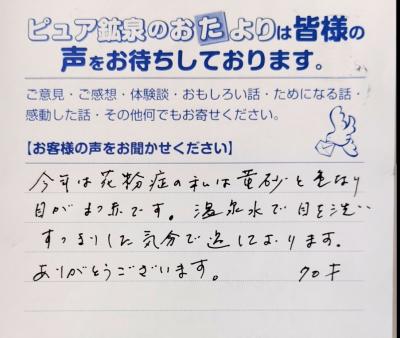 ピュア鉱泉のおたよりは皆様の
声をお待ちしております。
ご意見・ご感想・体験談・おもしろい話・ためになる話・
感動した話・その他何でもお寄せください。
【お客様の声をお聞かせください】
今年は花粉症の私は黄砂と重なり
目がまっ赤です。温泉水で目を洗い
すっきりした気分で過しております。
ありがとうございます。